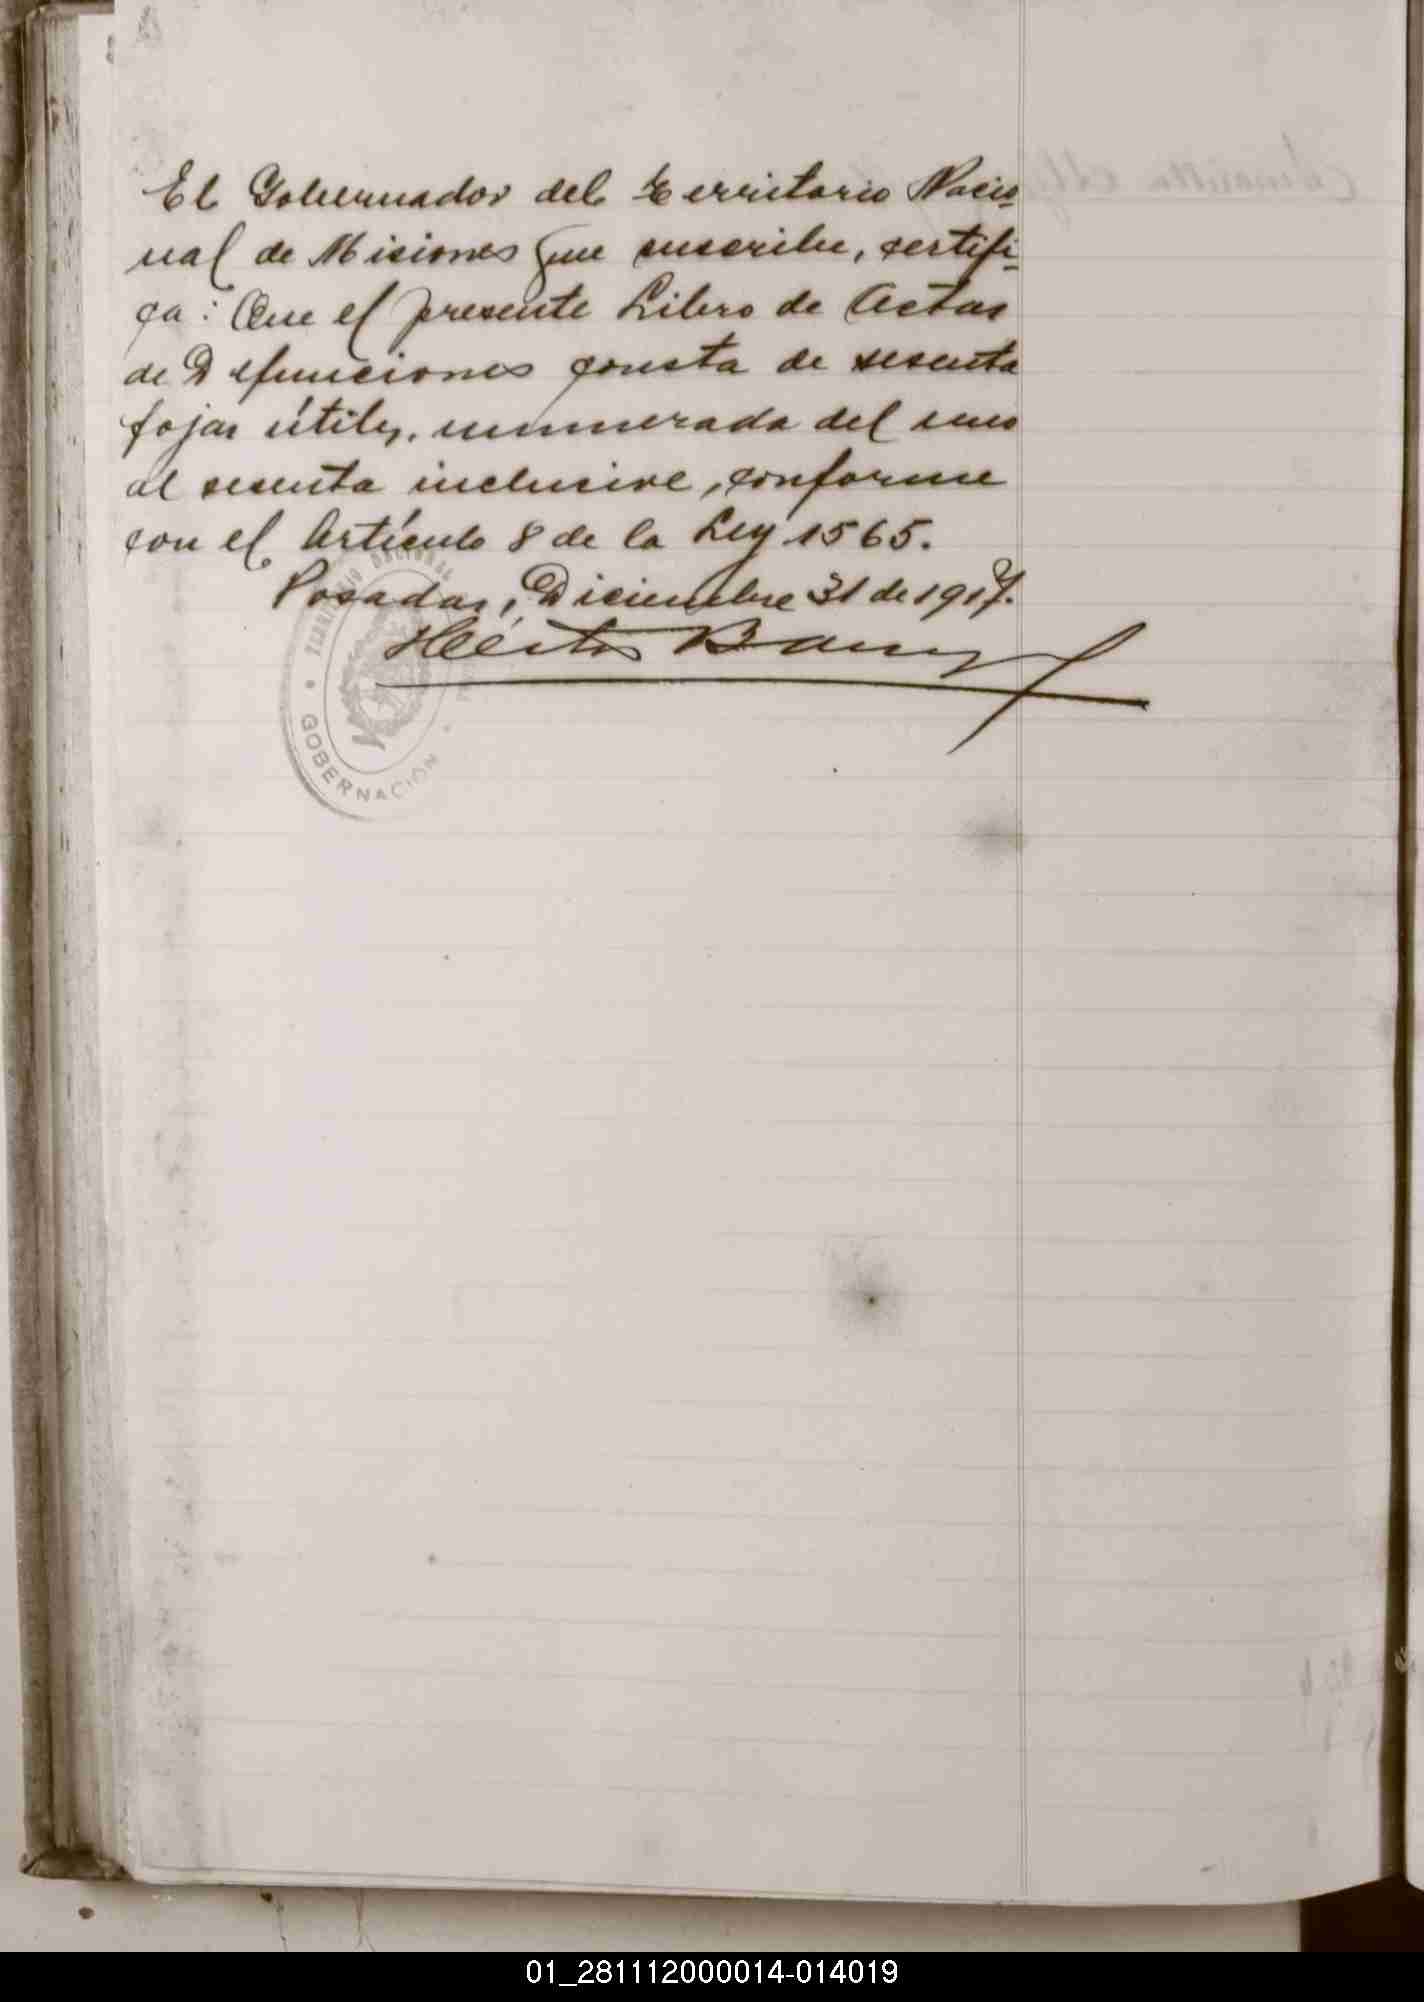 El Gobernador del Territorio Nacio-
nal de Misiones que suscribe, certifi-
ca: Que el presente Libro de Actas
de Defunciones consta de sesenta
fojas útiles, numerada del uno
al sesenta inclusive, conforme
con el Artículo 8 de la Ley 1565.
Posadas, Diciembre 31 de 1917.
Héctor Barreyro
TERRITORIO NACIONAL
GOBERNACIÓN
01_281112000014-014019